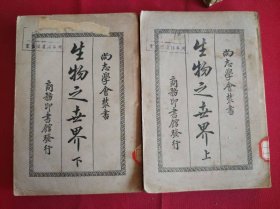 尚志學會叢書
生物之世界 上
商務印書館發行
尚志學會叢書
生物之世界 下
商務印書館發行